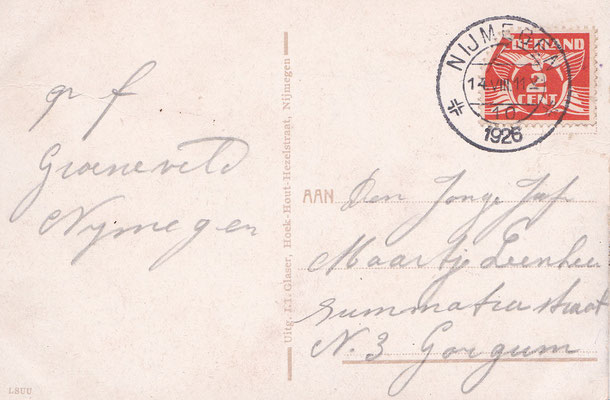 pr f
Groeneveld
Nymegen
Uitg. J.I. Glaser, Hoek-Hout-Hezelstraat, Nijmegen
NIJMEGEN
14 VIII 11
10
1926
NEDERLAND
2
CENT
AAN Den Jonge Juf
Maartje Leenheer
Summatra straat
N. 3 Gorgum